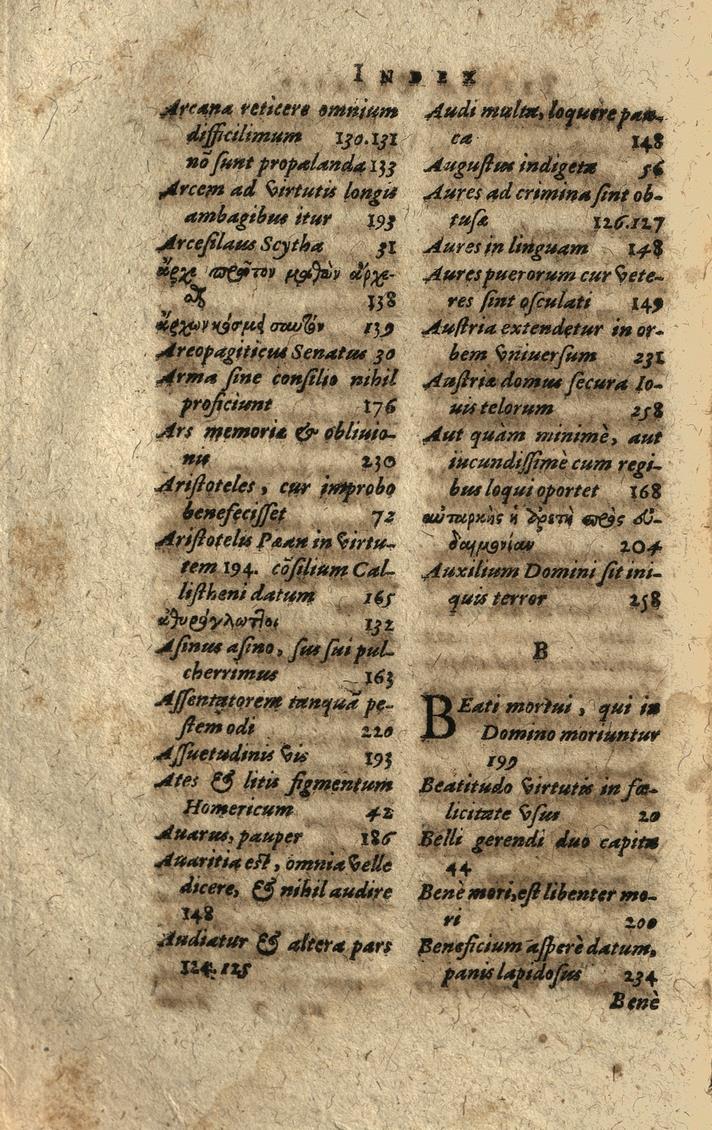 INDEX
Arcana reticere omnium
difficilimum 130.131
nō sunt propalanda 133
Arcem ad virtutis longis
ambagibus itur 193
Arcesilaus Scytha 31
ἄρχε πρῶτον μαθὼν ἄρχε-
138
ἄρχων κόσμει σαυτὸν 139
Areopagiticus Senatus 30
Arma sine consilio nihil
proficiunt 176
Ars memoriæ & obliuio-
nis 230
Aristoteles, cur improbo
benefecisset 72
Aristotelis Pæan in virtu-
tem 194. cōsilium Cal-
listheni datum 165
ἀθυρόγλωττοι 132
Asinus asino, sus sui pul-
cherrimus 163
Assentatorem tanquā pe-
stem odi 220
Assuetudinis vis 193
Ates & litis figmentum
Homericum 42
Auarus, pauper 186
Auaritia est, omnia velle
dicere, & nihil audire
148
Audiatur & altera pars
124.125
Audi multa, loquere pau-
ca 148
Augustus indigeta 56
Aures ad crimina sint ob-
tusæ 126.127
Aures in linguam 148
Aures puerorum cur vete-
res sint osculati 149
Austria extendetur in or-
bem vniuersum 231
Austriæ domus secura Io-
uis telorum 258
Aut quàm minimè, aut
iucundissimè cum regi-
bus loqui oportet 168
αὐτάρκης ἡ ἀρετὴ πρὸς εὐ-
δαιμονίαν 204
Auxilium Domini sit ini-
quis terror 258
B
BEati mortui, qui in
Domino moriuntur
199
Beatitudo virtutis in fœ-
licitate vsus 20
Belli gerendi duo capita
44
Benè mori, est libenter mo-
ri 200
Beneficium asperè datum,
panis lapidosus 234
Benè